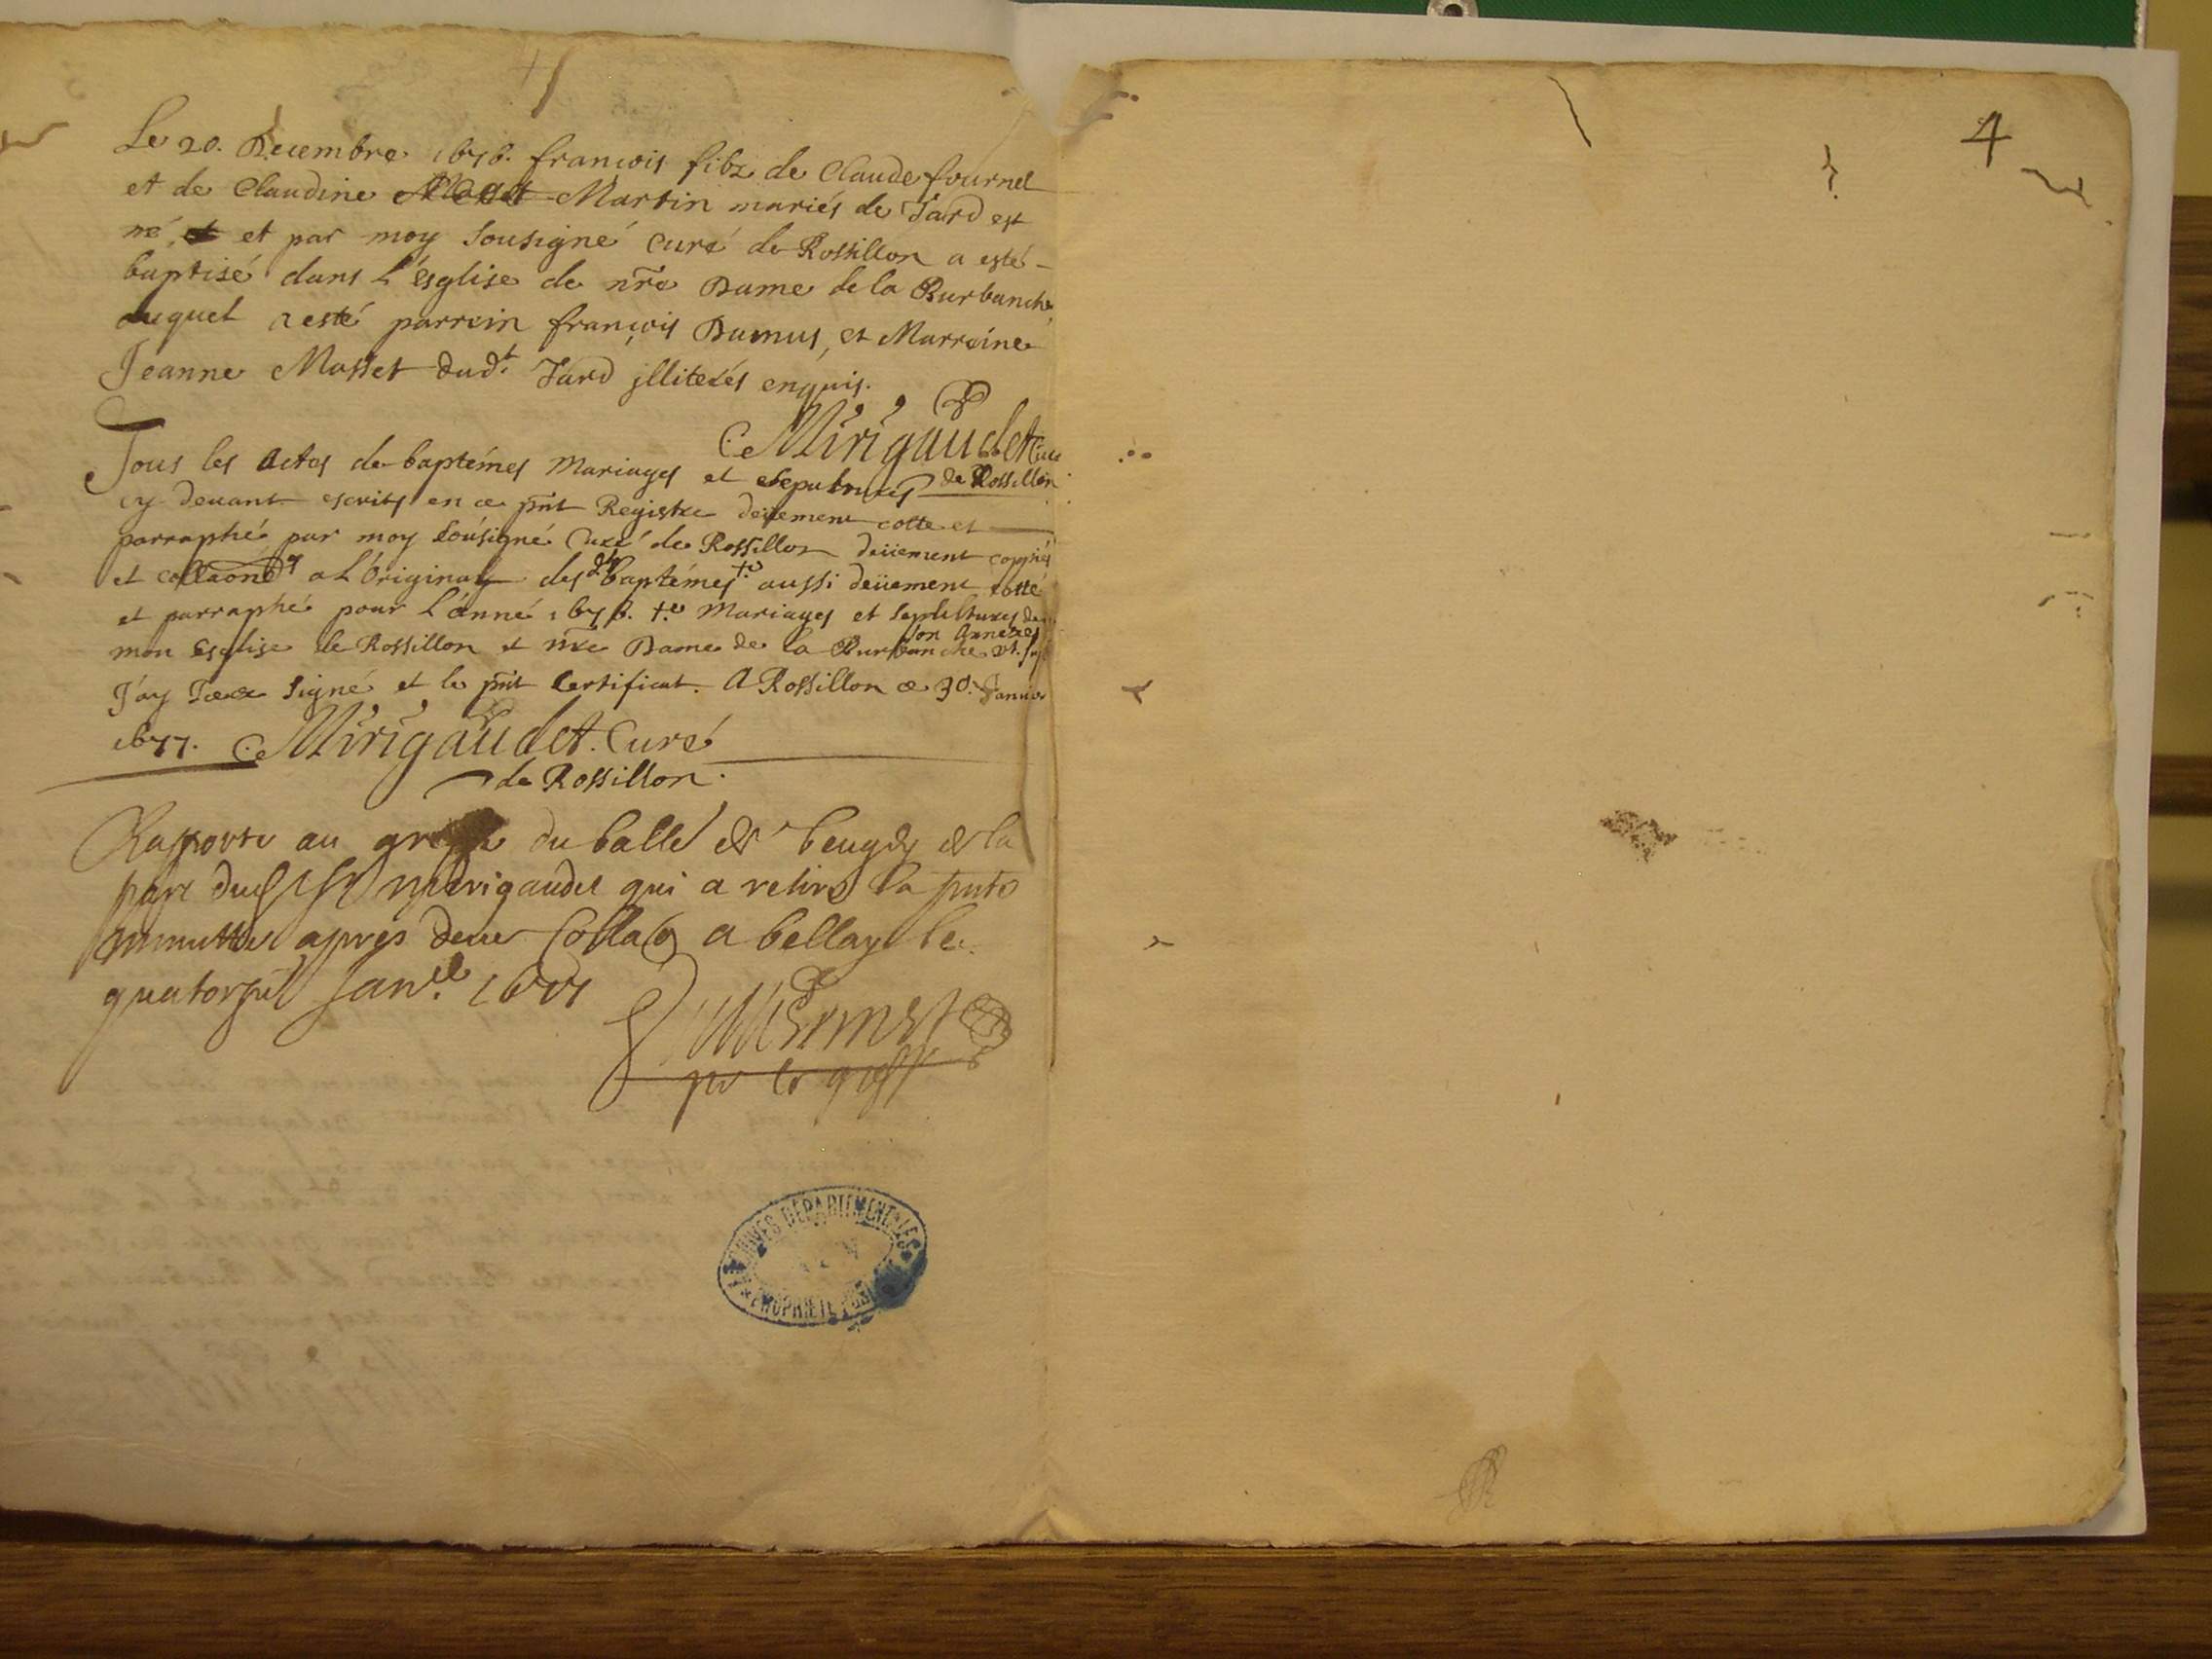 Le 20. Decembre 1676. françois filz de Claude fournel
et de Claudine Masset Martin mariés de Tard est
né, et et par moy sousigné curé de Rossillon a esté
baptisé dans l'esglise de nr̃e Dame de la Burbanche,
auquel a esté parrein françois Dumus, et Marreine
Jeanne Masset dud.t Tard jlliterés enquis.
C Mirigaudet Curé
de Rossillon
Tous les actes de baptémes Mariages et sepultures
cy devant escrits en ce pñt Registre deüement cotte et
parraphé par moy sousigné Curé de Rossillon deüement coppiés
et a l'original desd.ts baptémes aussi deüement cotté
et parraphé pour l'anné 1676. Mariages et sepultures de
son annexe
mon esglise de Rossillon et nr̃e Dame de la Burbanche
J'ay signé et le pñt Certificat. A Rossillon ce 30. Janvier
1677. C Mirigaudet. Curé
de Rossillon.
Rapporté au greffe du balle de beugey de la
part dud Sr Merigaudet qui a retiré la pnte
minutte apres deue Colla a bellay le
quatorze Janv.er
4
ARCHIVES DEPARTEMENTALES
PROPRIETE PUBLIQUE